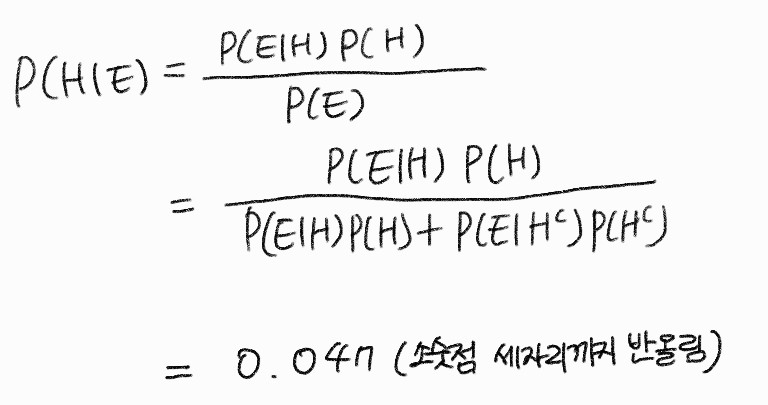 P(H|E) = P(E|H) P(H) / P(E)
= P(E|H) P(H) / P(E|H)P(H) + P(E|Hᶜ)P(Hᶜ)
= 0.047 (소숫점 세자리까지 반올림)